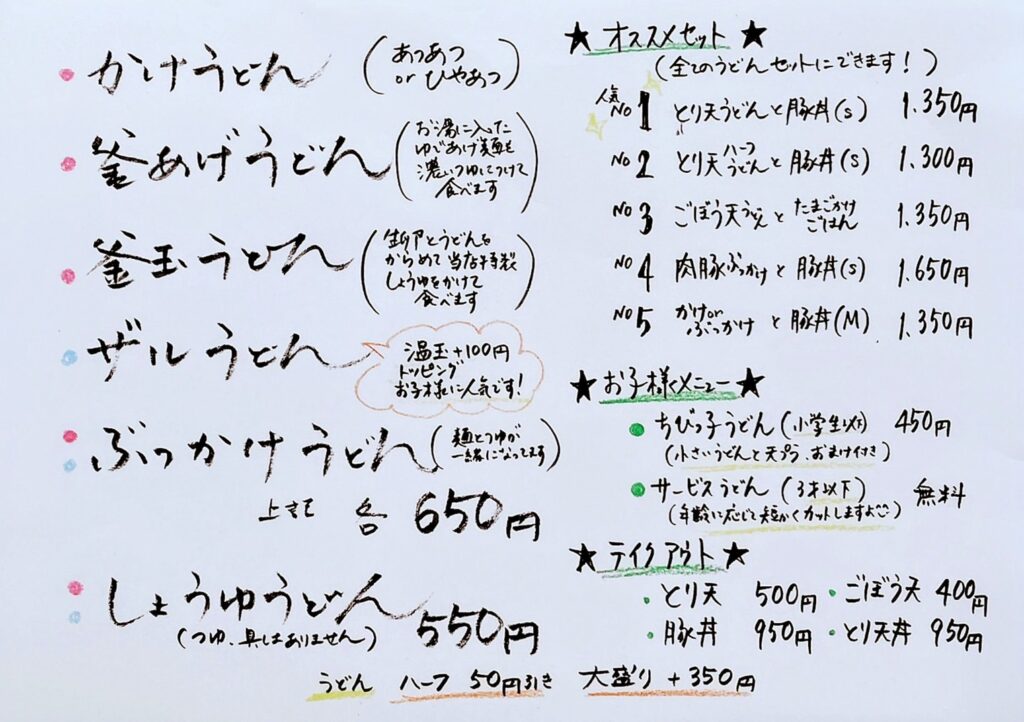 かけうどん
(あつあつ
or ひやあつ)
釜あげうどん
(お湯に入った
ゆであげ麺を
濃いつゆにつけて
食べます)
釜玉うどん
(生卵とうどんを
からめて当店特製
しょうゆをかけて
食べます)
ザルうどん
温玉+100円
トッピング
お子様に人気です!
ぶっかけうどん
(麺とつゆが
一緒になってます)
上まで 各 650円
しょうゆうどん
(つゆ、具はありません)
550円
★ オススメセット ★
(全てのうどんセットにできます!)
人気
No 1 とり天うどんと豚丼(S) 1.350円
No 2 とり天ハーフうどんと豚丼(S) 1.300円
No 3 ごぼう天うどんとたまごかけごはん 1.350円
No 4 肉豚ぶっかけと豚丼(S) 1.650円
No 5 かけorぶっかけと豚丼(M) 1.350円
★ お子様メニュー ★
ちびっ子うどん(小学生以下) 450円
(小さいうどんと天プラ、おまけ付き)
サービスうどん(3才以下) 無料
(年齢に応じて短かくカットしますよ)
★ テイクアウト ★
・とり天 500円 ・ごぼう天 400円
・豚丼 950円 ・とり天丼 950円
うどん ハーフ 50円引き 大盛り +350円